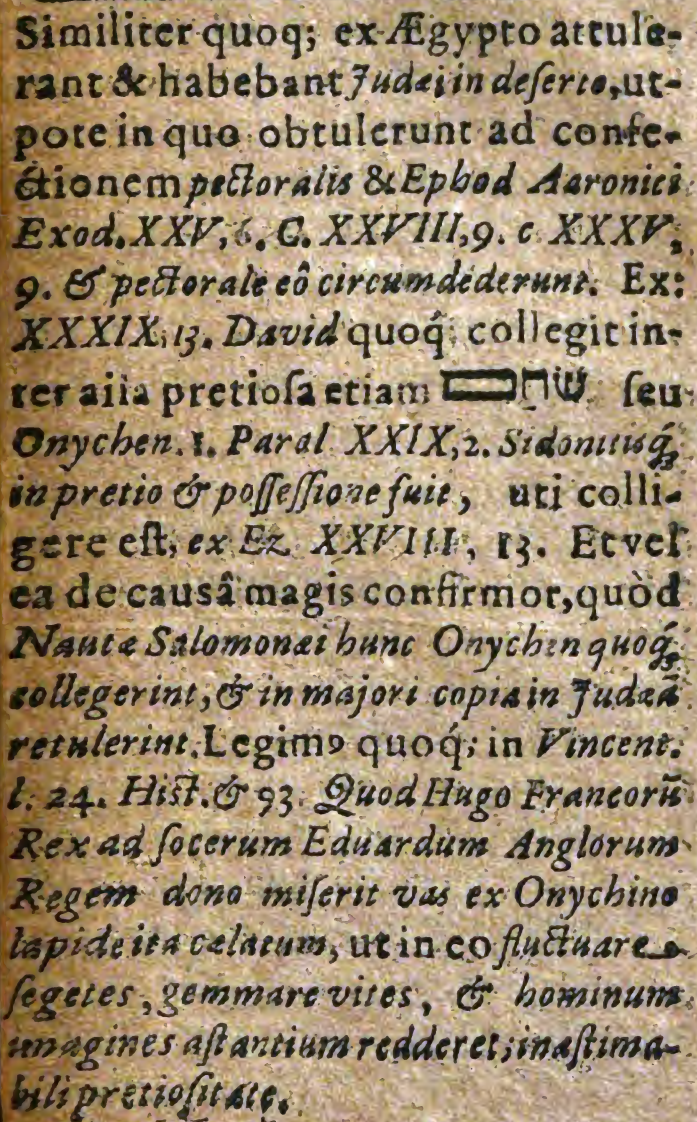 Similiter quoq; ex Ægypto attule-
rant & habebant Judæi in deſerto, ut-
pote in quo obtulerunt ad confe-
ctionem pectoralis & Ephod Aaronici
Exod. XXV, 6. C. XXVIII, 9. c XXXV,
9. & pectorale eô circumdederunt. Ex:
XXXIX, 13. David quoq́; collegit in-
ter alia pretioſa etiam שֹׁהַם ſeu
Onychen. 1. Paral XXIX, 2. Sidoniusq́;
in pretio & poſſeſſione fuit, uti colli-
gere eſt, ex Ez XXVIII, 13. Et vel
ea de causâ magis confirmor, quòd
Nautæ Salomonæi hunc Onychen quoq́;
collegerint, & in majori copia in Judæâ
retulerint. Legimꝰ quoq́; in Vincent.
l. 24. Hiſt. & 93. Quod Hugo Francorũ
Rex ad ſocerum Eduardum Anglorum
Regem dono miſerit vas ex Onychino
lapide ita cælatum, ut in eo fluctuare
ſegetes, gemmare vites, & hominum
imagines aſtantium redderet; inæſtima-
bili pretioſitate.